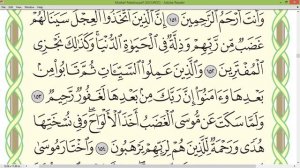 (SECURED) - Adobe Reader
وَأَنتَ أَرْحَمُ ٱلرَّٰحِمِينَ ١٥١ إِنَّ ٱلَّذِينَ ٱتَّخَذُوا۟ ٱلْعِجْلَ سَيَنَالُهُمْ
غَضَبٌ مِّن رَّبِّهِمْ وَذِلَّةٌ فِى ٱلْحَيَوٰةِ ٱلدُّنْيَا وَكَذَٰلِكَ نَجْزِى
ٱلْمُفْتَرِينَ ١٥٢ وَٱلَّذِينَ عَمِلُوا۟ ٱلسَّيِّـَٔاتِ ثُمَّ تَابُوا۟ مِنۢ
بَعْدِهَا وَءَامَنُوٓا۟ إِنَّ رَبَّكَ مِنۢ بَعْدِهَا لَغَفُورٌ رَّحِيمٌ ١٥٣
وَلَمَّا سَكَتَ عَن مُّوسَى ٱلْغَضَبُ أَخَذَ ٱلْأَلْوَاحَ ۖ وَفِى نُسْخَتِهَا
هُدًى وَرَحْمَةٌ لِّلَّذِينَ هُمْ لِرَبِّهِمْ يَرْهَبُونَ ١٥٤ وَٱخْتَارَ مُوسَىٰ